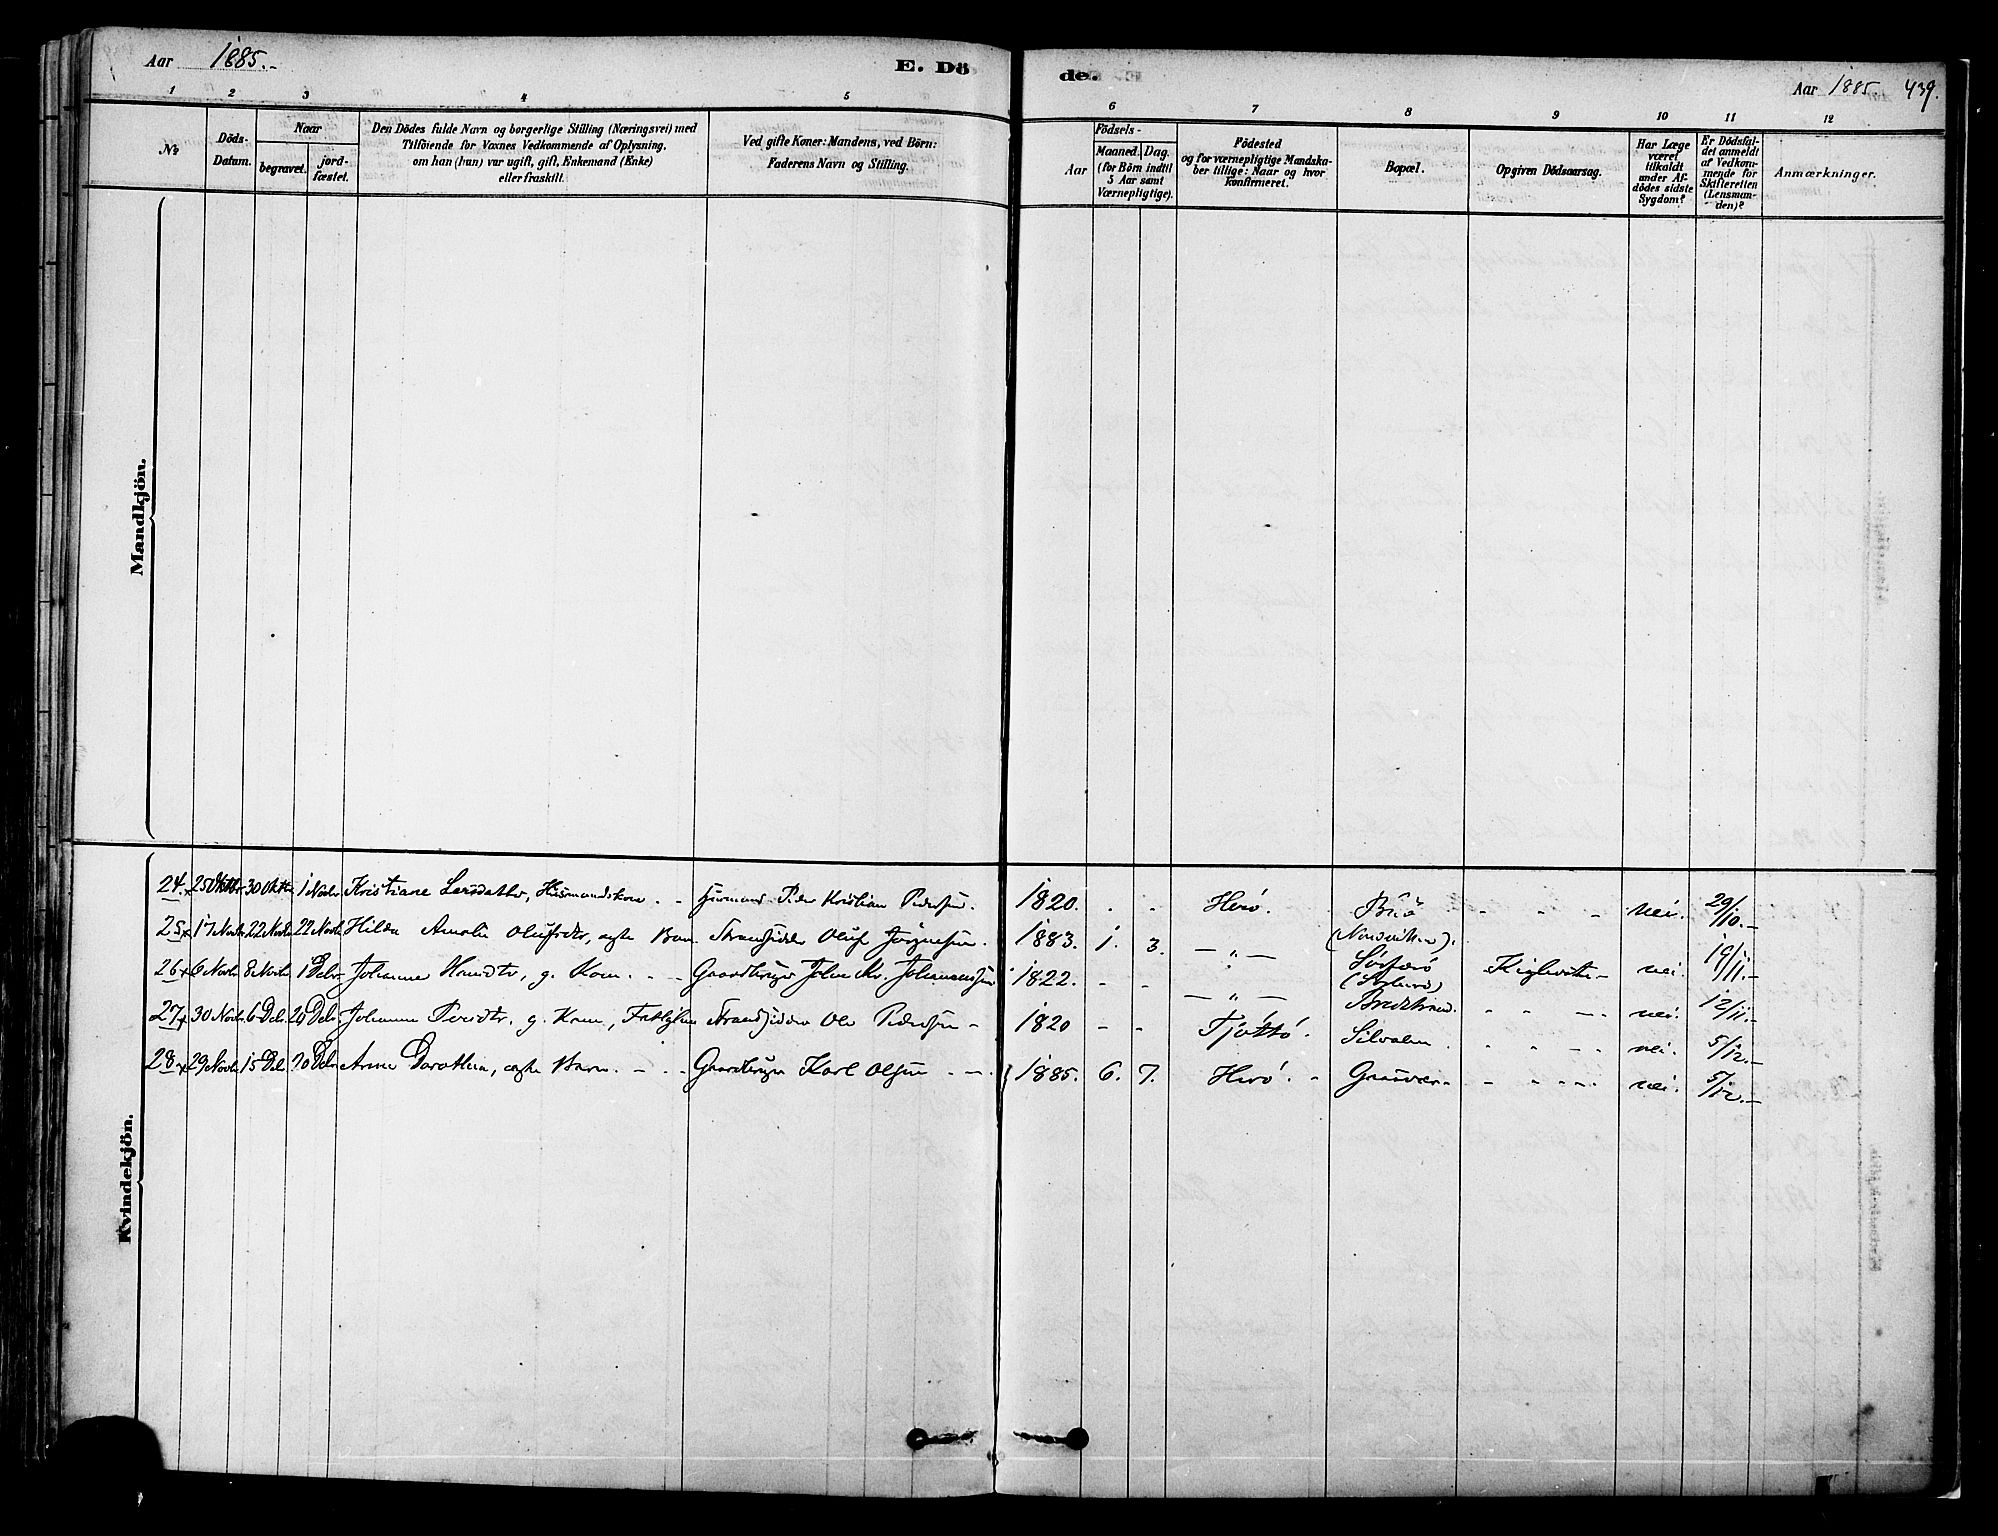 Aar 1885.-
E. Dö
de.
Aar 1885. 439.
1 2 3 4 5 6 7 8 9 10 11 12
№
Döds-Datum.
Naar
begravet.
jord-fæstet.
Den Dödes fulde Navn og borgerlige Stilling (Næringsvei) med
Tilföiende for Voxnes Vedkommende af Oplysning,
om han (hun) var ugift, gift, Enkemand (Enke)
eller fraskilt.
Ved gifte Koner: Mandens, ved Börn:
Faderens Navn og Stilling.
Födsels-
Aar
Maaned. Dag.
(for Börn indtil
5 Aar samt
Værnepligtige).
Födested
og for værnepligtige Mandska-
ber tillige: Naar og hvor
konfirmeret.
Bopæl.
Opgiven Dödsaarsag.
Har Læge
været
tilkaldt
under Af-
dödes sidste
Sygdom?
Er Dödsfal-
det anmeldt
af Vedkom-
mende for
Skifteretten
(Lensman-
den)?
Anmærkninger.
Mandkjön.
Kvindekjön.
24. 25 Oktbr 30 Oktbr 1 Novbr Kristiane Larsdatter, Husmandskone Husmand Peder Kristian Pedersen. 1820. Herö. Brö (Nordviken). nei. 29/10.-
25 17 Novbr 22 Novbr 22 Novbr Hilda Amalie Olufsdtr, ægte Barn Strandsidder Oluf 1883. 1. 3. - " - nei. 19/11.-
26 6 Novbr 8 Novbr 1 Debr Johanna g. Kone. Gaardbruger Johan Kr. Johannessen 1822. - " - nei. 12/11.-
27 30 Novbr 6 Debr 20 Debr Johanna g. Kone, Strandsidder Ole Pedersen 1820 Tjöttö. Silvalen nei. 5/12.-
28 29 Novbr 15 Debr 20 Debr Anna Dorothea, ægte Barn. Gaardbruger Karl Olsen 1885. 6. 7. Herö. Gaasvær nei. 5/12.-